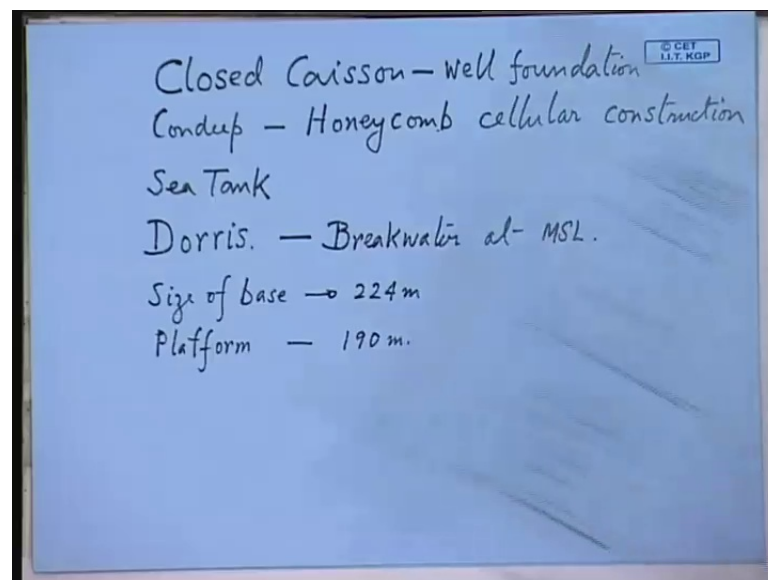 Closed Caisson — well foundation
© CET
I.I.T. KGP
Condeep — Honeycomb cellular construction
Sea Tank
Dorris. — Breakwater at MSL.
Size of base → 224 m
Platform — 190 m.